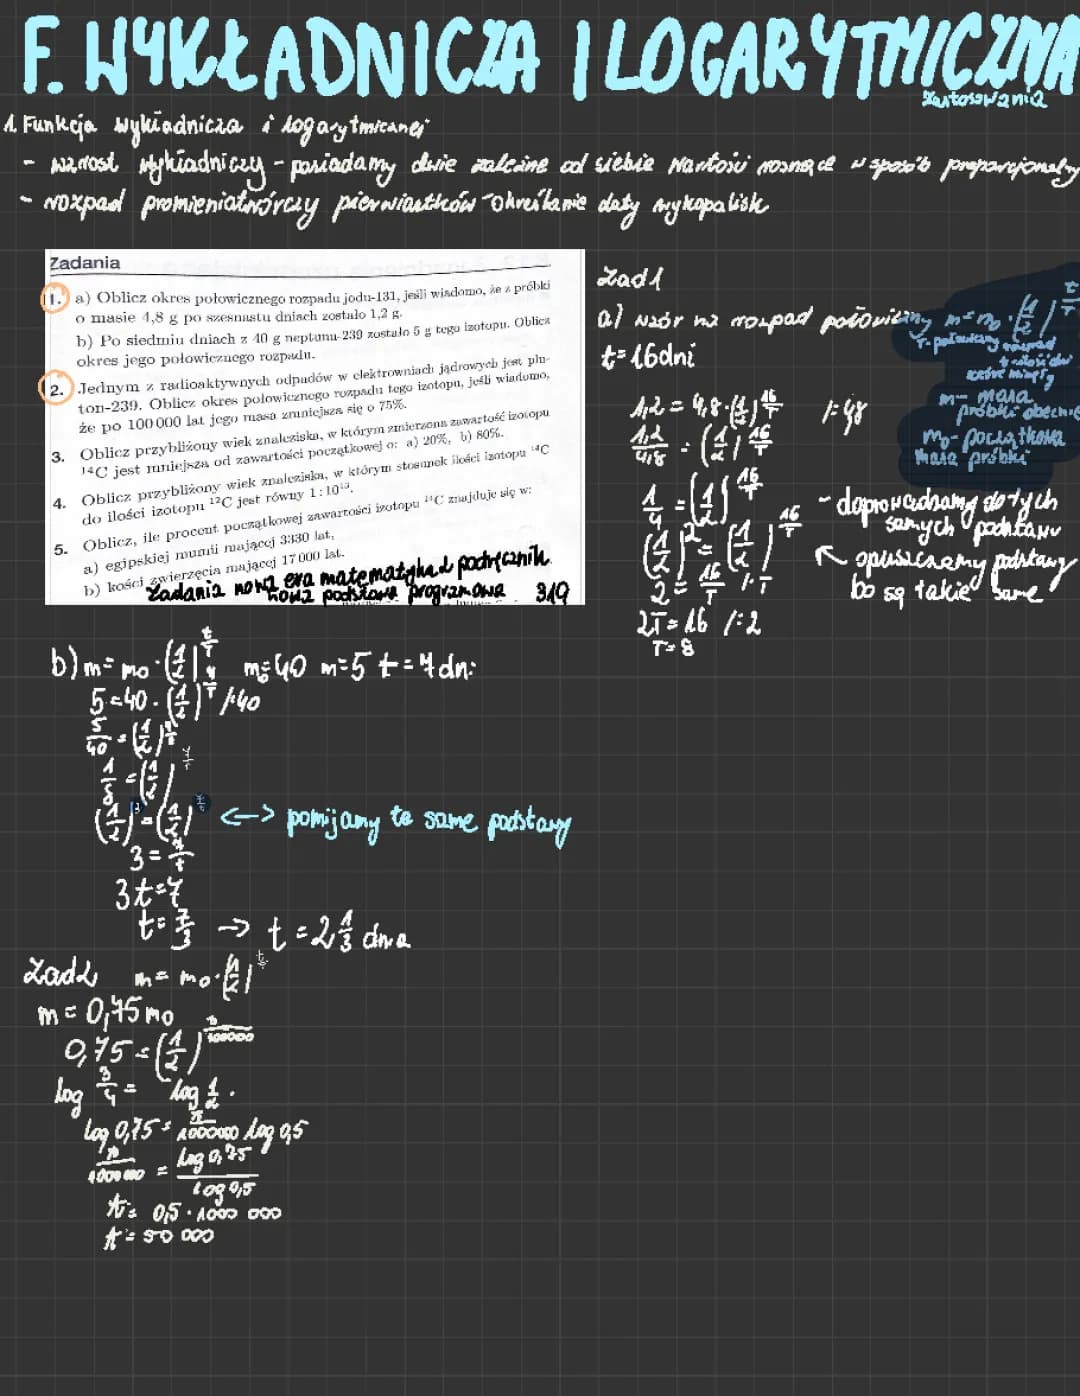 F. WYKŁADNICZA I LOGARYTMICZNA
Zastosowania
1. Funkcja wykładnicza i logarytmicznej
- wzrost wykładniczy - posiadamy dwie zależne od siebie wartości rosnące w sposób proporcjonalny
- rozpad promieniotwórczy pierwiastków - określanie daty wykopalisk
Zadania
1. a) Oblicz okres połowicznego rozpadu jodu-131, jeśli wiadomo, że z próbki
o masie 4,8 g po szesnastu dniach zostało 1,2 g.
b) Po siedmiu dniach z 40 g neptunu-239 zostało 5 g tego izotopu. Oblicz
okres jego połowicznego rozpadu.
2. Jednym z radioaktywnych odpadów w elektrowniach jądrowych jest plu-
ton-239. Oblicz okres połowicznego rozpadu tego izotopu, jeśli wiadomo,
że po 100 000 lat jego masa zmniejsza się o 75%.
3. Oblicz przybliżony wiek znaleziska, w którym zmierzona zawartość izotopu
¹⁴C jest mniejsza od zawartości początkowej o: a) 20%, b) 80%.
4. Oblicz przybliżony wiek znaleziska, w którym stosunek ilości izotopu ¹⁴C
do ilości izotopu ¹²C jest równy 1 : 10¹³.
5. Oblicz, ile procent początkowej zawartości izotopu ¹⁴C znajduje się w:
a) egipskiej mumii mającej 3330 lat,
b) kości zwierzęcia mającej 17 000 lat.
Zadania nowa era matematyka 2 podręcznik
nowa podstawa programowa 319
Zad 1
a) wzór na rozpad połowiczny m = m₀ · (1/2)^(t/T)
T - połowiczny rozpad
t - ilość dni
które minęły
m - masa
próbki obecnie
m₀ - początkowa
masa próbki
t = 16 dni
1,2 = 4,8 · (1/2)^(16/T) /: 4,8
1,2/4,8 = (1/2)^(16/T)
1/4 = (1/2)^(16/T) - doprowadzamy do tych
samych podstaw
(1/2)² = (1/2)^(16/T) ↖ opuszczamy podstawy
bo są takie same
2 = 16/T /· T
2T = 16 /: 2
T = 8
b) m = m₀ · (1/2)^(t/T) m₀ = 40 m = 5 t = 7 dni
5 = 40 · (1/2)^(7/T) /: 40
5/40 = (1/2)^(7/T)
1/8 = (1/2)^(7/T)
(1/2)³ = (1/2)^(7/T) <-> pomijamy te same podstawy
3 = 7/t
3t = 7
t = 7/3 → t = 2 1/3 dnia
Zad 2 m = m₀ · (1/2)^(t/T)
m = 0,75 m₀
0,75 = (1/2)
log 3/4 = log 1/2 ·
log 0,75 = 1000000 log 0,5
1000 000 = log 0,75 / log 0,5
= 0,5 · 1000 000
= 50 000